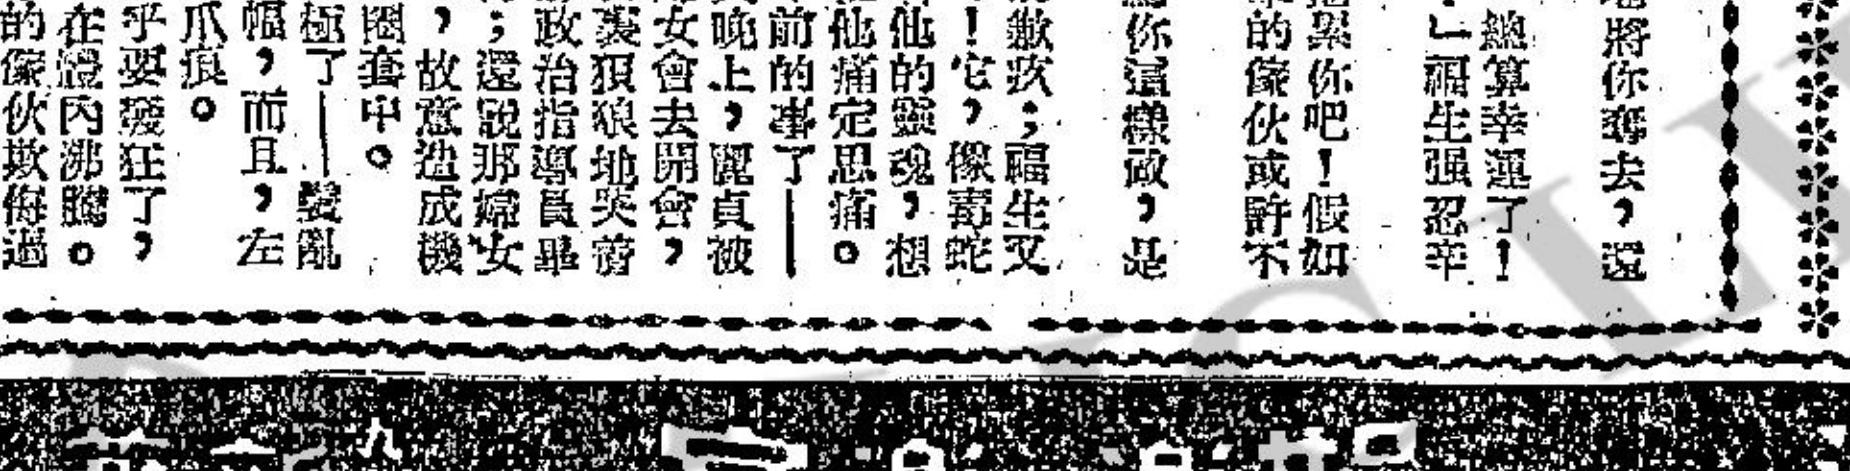 將你奪去，還
總算幸運了！
！」福生强忍辛
累你吧！假如
的傢伙或許不
你這樣做，是
歉疚；福生又
！它，像毒蛇
他的靈魂，想
他痛定思痛。
前的事了——
晚上，麗貞被
女會去開會，
裏狠狠地哭着
政治指導員畢
；還說那婦女
，故意造成機
圈套中。
極了——髮亂
幅，而且，左
爪痕。
乎要發狂了，
在體內沸騰。
的傢伙欺侮過